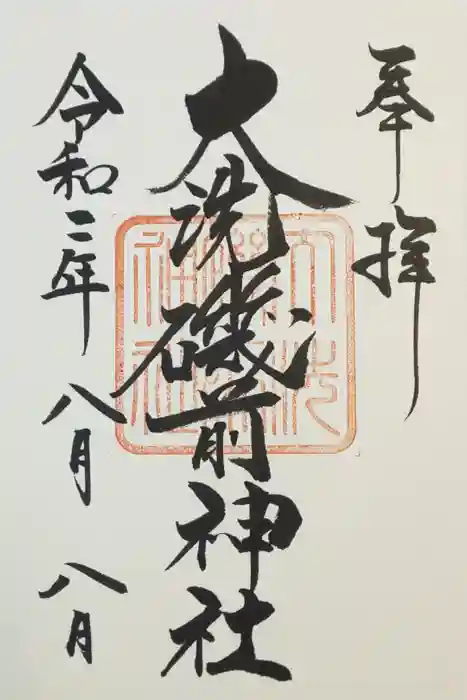 奉拝
大洗磯前神社
令和二年 八月 八日